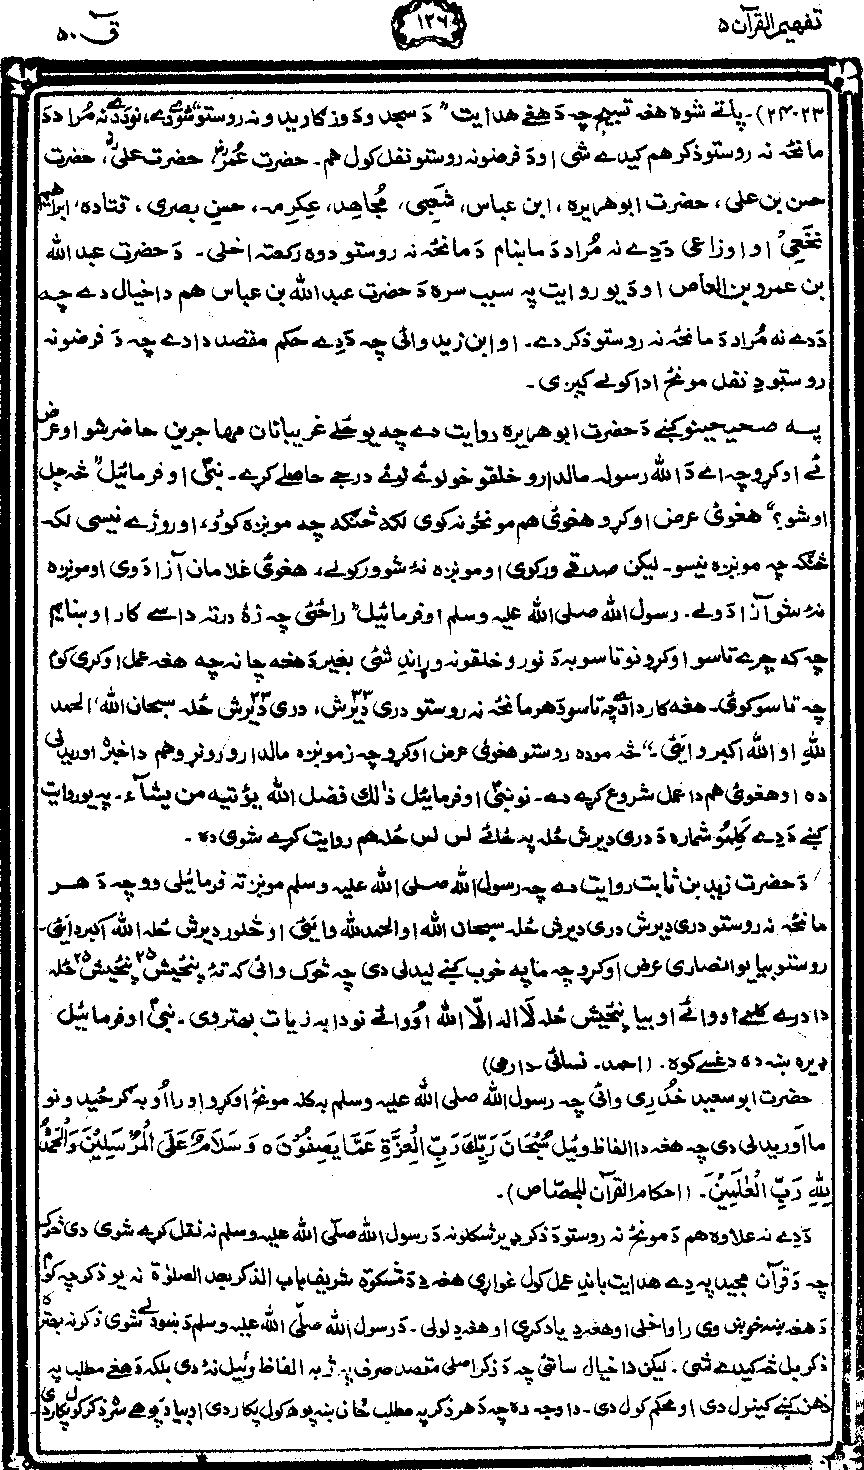 تفهیم القرآن ۵
۱۲۶
قٓ ۵۰
۲۳-۲۴)۔ پاتے شوہ هغہ تسبیح چہ دَ هغے هدایت "دَ سجدو دَ وزګارېدو نہ روستو" شوے دے، نو دَ دے نہ مُراد دَ
مانځہ نہ روستو ذکر هم کیدے شی او دَ فرضو نہ روستو نفل کول هم۔ حضرت عُمرؓ، حضرت علیؓ، حضرت
حسن بن علی، حضرت ابوهریرہ، ابن عباس، شَعبی، مُجاهد، عِکرِمہ، حسن بصری، قتادہ، ابراهیم
نخعیؒ او اوزاعی دَدِے نہ مُراد دَ ماښام دَ مانځہ نہ روستو دوہ رکعتہ اخلی۔ دَ حضرت عبد الله
بن عمرو بن العاص او دَ یو روایت پہ سبب سرہ دَ حضرت عبد الله بن عباس هم دا خیال دے چہ
دَدے نہ مُراد دَ مانځہ نہ روستو ذکر دے۔ او ابن زید وائی چہ دَدِے حکم مقصد دا دے چہ دَ فرضو نہ
روستو دِ نفل مونځ ادا کولے کیږی۔
پہ صحیحینو کښے دَ حضرت ابوهریرہ روایت دے چہ یو ځلے غریبانان مهاجرین حاضر شو او عرض
ئے اوکړو چہ اے دَ الله رسولہ مالدارو خلقو خو لوئے لوئے درجے حاصلے کړے۔ نبیؐ اوفرمائیل "څہ چل
اوشو؟" هغوئ عرض اوکړو هغوئ هم مونځونہ کوی لکہ څنګہ چہ مونږہ کوؤ، او روژے نیسی لکہ
څنګہ چہ مونږہ نیسو۔ لیکن صدقے ورکوی او مونږہ نۂ شو ورکولے، هغوئ غلامان آزادوی او مونږہ
نۂ شو آزادولے۔ رسول الله صلی الله علیہ وسلم اوفرمائیل "راځئ چہ زۂ درتہ داسے کار اوښایم
چہ کہ چرے تاسو اوکړو نو تاسو بہ دَ نورو خلقو نہ وړاندِ شئ بغیر دَ هغہ چا نہ چہ هغہ عمل اوکړی کوم
چہ تاسو کوئ۔ هغہ کار دا دے چہ تاسو دَ هر مانځہ نہ روستو دری دیرش۳۳، دری دیرش۳۳ ځلہ سبحان الله، الحمد
للهِ او الله اکبر وایئ۔" څہ مودہ روستو هغوئ عرض اوکړو چہ زمونږہ مالدارو روڼرو هم دا خبرہ اوریدلی
دہ او هغوئ هم دا عمل شروع کړے دے۔ نو نبیؐ اوفرمائیل ذٰلك فضل الله یؤتیه من یشآء۔ پہ یو روایت
کښے دَدِے کلِمو شمارہ دَ دری دیرش ځلہ پہ ځائے لس لس ځلہ هم روایت کړے شوی دہ۔
دَ حضرت زید بن ثابت روایت دے چہ رسول الله صلی الله علیہ وسلم مونږ تہ فرمائیلی وو چہ دَ هر
مانځہ نہ روستو دری دیرش دری دیرش ځلہ سبحان الله او الحمد لله وایئ او څلور دیرش ځلہ الله اکبر وایئ۔
روستو بیا یو انصاری عرض اوکړو چہ ما پہ خوب کښے لیدلی دی چہ څوک وائی کہ تۂ پنځیش۲۵ پنځیش۲۵ ځلہ
دا درے کلیمے اووائے او بیا پنځیش ځلہ لَا اله الّا الله اوُوائے نو دا بہ زیات بهتر وی۔ نبیؐ اوفرمائیل
ډیرہ ښہ دہ دغسے کوہ۔ (احمد۔ نسائی۔ دارمی)
حضرت ابوسعید خُدری وائی چہ رسول الله صلی الله علیہ وسلم بہ کلہ مونځ اوکړو او رااُو بہ ګرځیدو نو
ما اوریدلی دی چہ هغہ دا الفاظ وئیل سُبْحَانَ رَبِّكَ رَبِّ الْعِزَّةِ عَمَّا یَصِفُوْنَ ٥ وَ سَلَامٌ عَلَى الْمُرْسَلِیْنَ وَالْحَمْدُ
لِلهِ رَبِّ الْعٰلَمِیْنَ۔ (احکام القرآن للجصّاص)۔
دَدِے نہ علاوہ هم دَ مونځ نہ روستو دَ ذکر ډیر شکلونہ دَ رسول الله صلّی الله علیہ وسلم نہ نقل کړے شوی دی څوک
چہ دَ قرآن مجید پہ دے هدایت باندِ عمل کول غواړی هغہ دِ دَ مشکوٰة شریف باب الذکر بعد الصلوٰة نہ یو ذکر چہ کوم
دَ هغہ ښہ خوښ وی را واخلی او هغہ دِ یاد کړی او هغہ دِ لولی۔ دَ رسول الله صلّی الله علیہ وسلم دَ ښودلے شوی ذکر نہ بهتره
ذکر بل څہ کیدے شی۔ لیکن دا خیال ساتئ چہ دَ ذکر اصلی مقصد صرف پہ ژبہ الفاظ وئیل نۂ دی بلکہ دَ هغے مطلب پہ
ذهن کښے کینول دی او محکم کول دی۔ دا وجہ دہ چہ دَ هر ذکر پہ مطلب ځان ښہ پوهہ کول پکار دی او بیا دَ پوهے سرہ ذکر کول پکار دی